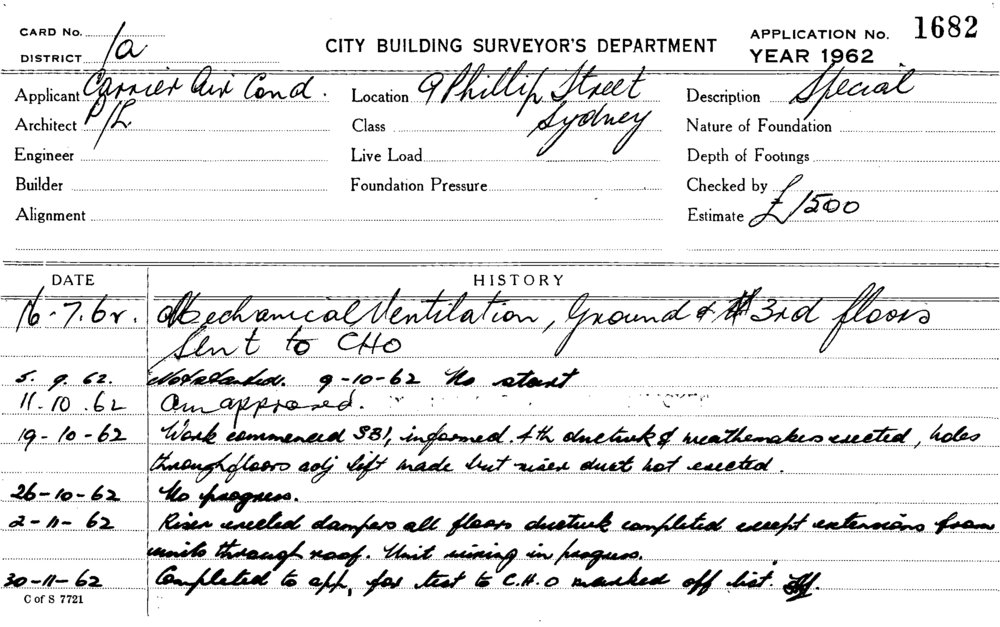 CARD No.
DISTRICT 1a
CITY BUILDING SURVEYOR'S DEPARTMENT
APPLICATION No. 1682
YEAR 1962
Applicant Carrier Air Cond. Location 9 Phillip Street Description Special
Architect P/L Class Sydney Nature of Foundation
Engineer Live Load Depth of Footings
Builder Foundation Pressure Checked by
Alignment Estimate £1500
DATE HISTORY
16.7.62. Mechanical Ventilation, Ground & 3rd floors
Sent to CHO
5.9.62. Not started. 9-10-62 No start
11.10.62 approved.
19-10-62 Work commenced SB1, informed. 4th ductwk & weathermakers erected, holes
through floors adj lift made but riser duct not erected.
26-10-62 No progress.
2-11-62 Riser erected dampers all floors ductwk completed except extensions from
units through roof. Unit wiring in progress.
30-11-62 Completed to app, for test to C.H.O marked off list.
C of S 7721